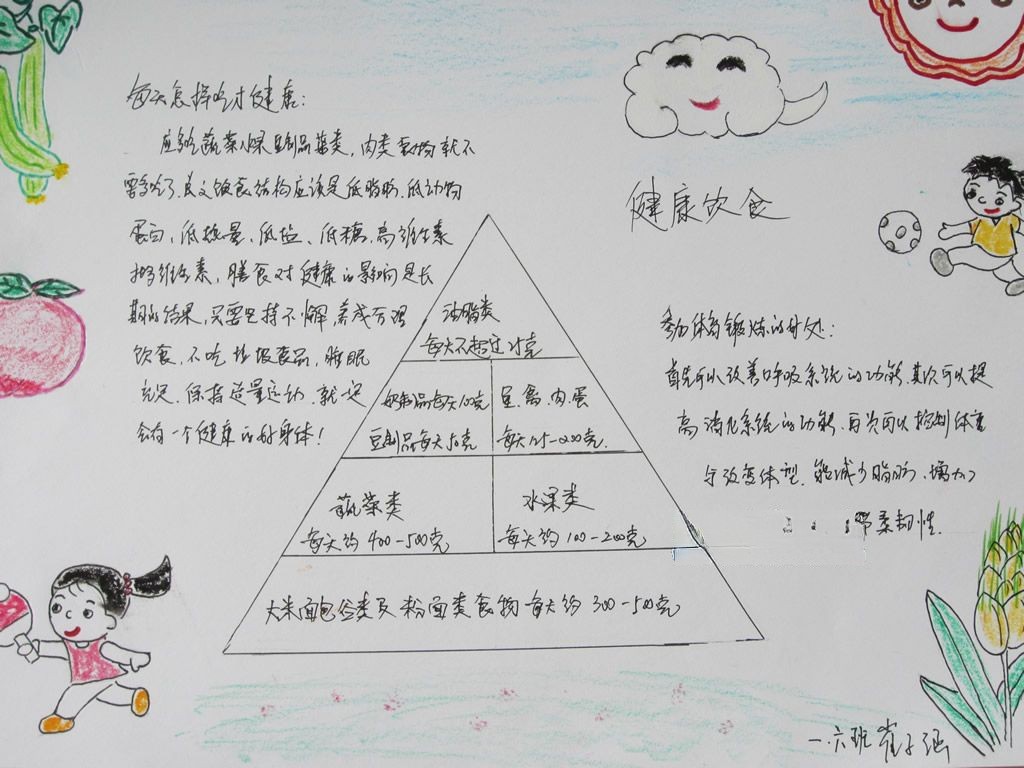 每天怎样吃才健康：
应多吃蔬菜水果豆制品菌类，肉类食物就不
要多吃了，其次饮食结构应该是低脂肪、低动物
蛋白、低热量、低盐、低糖、高维生素
膳食对健康的影响是长
期的结果，只要坚持不懈，养成合理
饮食，不吃垃圾食品，睡眠
充足，保持适量运动，就一定
会有一个健康的好身体！
健康饮食
油脂类
每天不超过25克
奶制品每天100克
豆制品每天50克
鱼、禽、肉、蛋
每天125-200克
蔬菜类
每天约400-500克
水果类
每天约100-200克
大米面包谷类及粉面类食物每天约300-500克
参加体育锻炼的好处：
首先可以改善呼吸系统的功能，其次可以提
高消化系统的功能，再次可以控制体重
与改变体型，能减少脂肪、增加
柔韧性。
一.六班 崔子涵